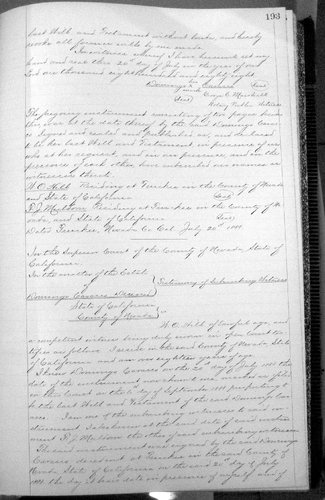 193
last Will and Testament without bonds, and hereby
revoke all former wills by me made.
In witness whereof I have hereunto set my
hand and seal this 20th day of July in the year of our
Lord one thousand eight hundred and eighty eight.
Domingo Caveres
his mark
Seal
Notary Public Witness
The foregoing instrument consisting of two pages
was at the date thereof by the said Domingo
signed and sealed and published as, and declared
to be his last Will and Testament in presence of us
who at his request, and in our presence, and in the
presence of each other, have subscribed our names as
witnesses thereto.
W. O. Hill Residing at Truckee in the County of Nevada
and State of California Seal
P. J. Mulloon Residing at Truckee in the County of
Nevada, and State of California Seal
Dated Truckee, Nevada Co. Cal. July 20th 1888.
In the Superior Court of the County of Nevada, State of
California.
In the matter of the Estate
of
Testimony of Subscribing Witness
Domingo Caveres Deceased
State of California
County of Nevada
W. O. Hill of lawful age,
a competent witness being duly sworn in open Court
testifies as follows I reside in the said County of Nevada, State
of California and am over eighteen years of age.
I knew Domingo Caveres on the 20th day of July 1888 the
date of the instrument now shown me, and filed
in this Court on the day of September 1888 purporting
to be the last Will and Testament of the said Domingo
I am one of the subscribing witnesses to said
instrument. I also knew at the said date of said instrument
P. J. Mulloon the other subscribing witness.
The said instrument was signed by the said Domingo
Caveres deceased at Truckee in the said County of
Nevada, State of California on the said 20th day of July
1888 the day it bears date in presence of myself and of